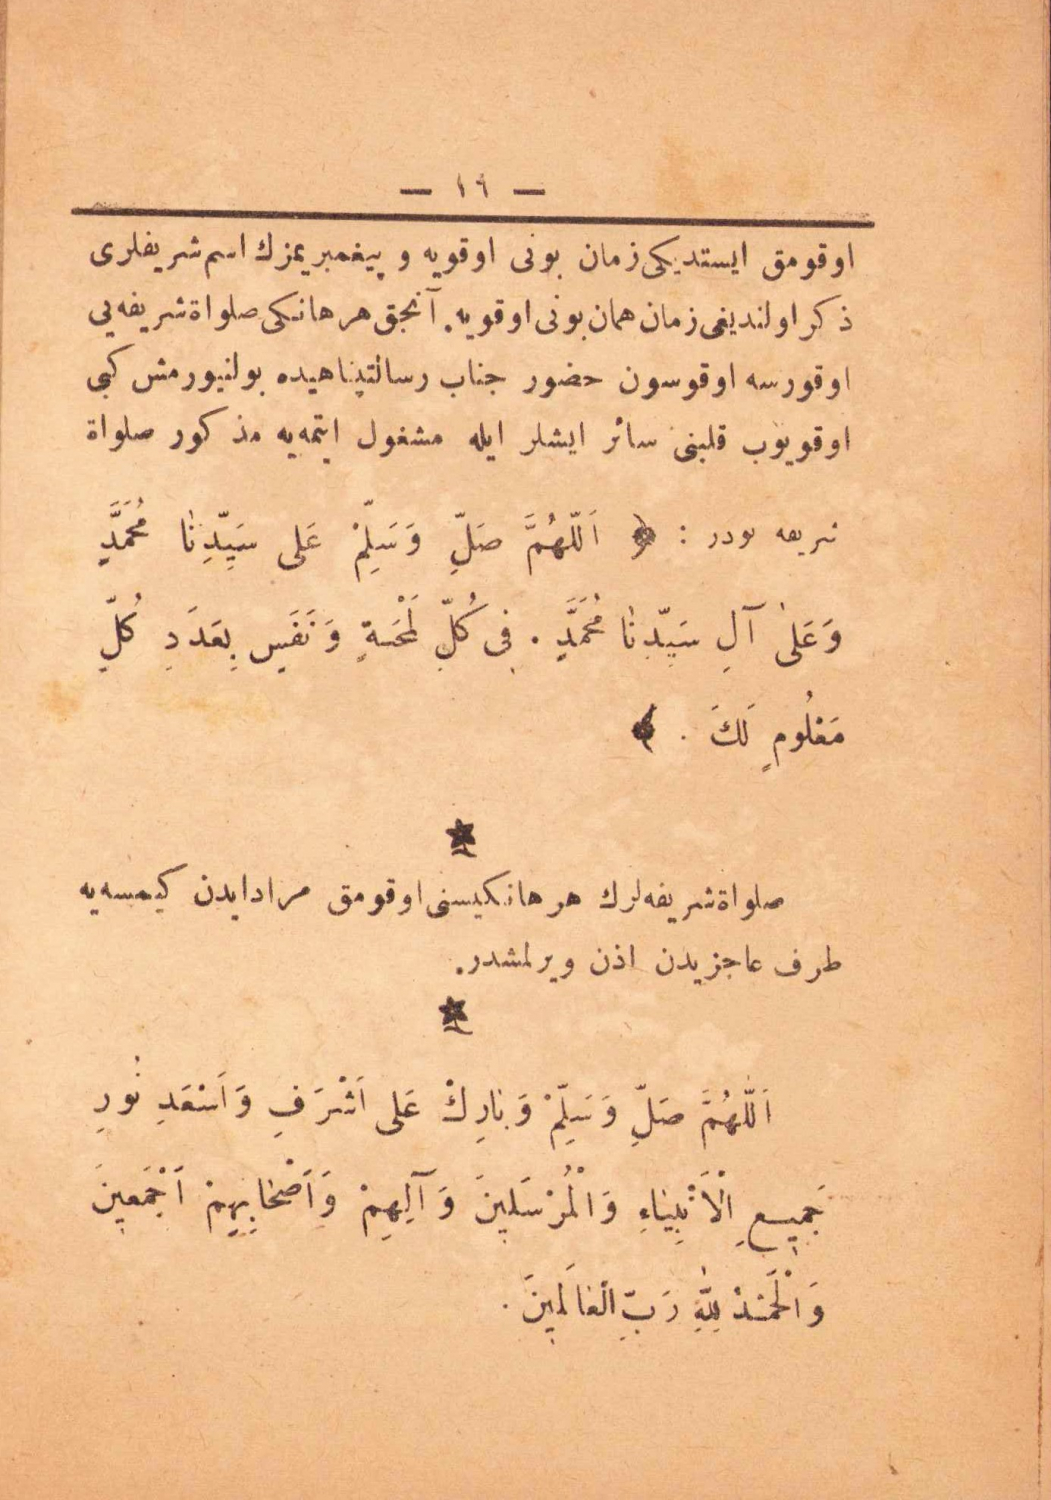 — ١٦ —
اوقومق ايستديكى زمان بونى اوقويه و پيغمبريمزك اسم شريفلرى
ذكر اولنديغى زمان همان بونى اوقويه. آنجق هر هانكى صلواة شريفه يى
اوقورسه اوقوسون حضور جناب رسالتپناهيده بولنيورمش كبى
اوقويوب قلبنى سائر ايشلر ايله مشغول ايتمه يه مذكور صلواة
شريفه بودر : ﴿ اَللّٰهُمَّ صَلِّ وَسَلِّمْ عَلٰى سَيِّدِنَا مُحَمَّدٍ
وَعَلٰى آلِ سَيِّدِنَا مُحَمَّدٍ . فِى كُلِّ لَمْحَةٍ وَنَفَسٍ بِعَدَدِ كُلِّ
مَعْلُومٍ لَكَ . ﴾
صلواة شريفه لرك هر هانكيسنى اوقومق مراد ايدن كيمسه يه
طرف عاجزيدن اذن ويرلمشدر.
اَللّٰهُمَّ صَلِّ وَسَلِّمْ وَبَارِكْ عَلٰى اَشْرَفِ وَاَسْعَدِ نُورِ
جَمِيعِ الْاَنْبِيَاءِ وَالْمُرْسَلِينَ وَآلِهِمْ وَاَصْحَابِهِمْ اَجْمَعِينَ
وَالْحَمْدُ لِلّٰهِ رَبِّ الْعَالَمِينَ .